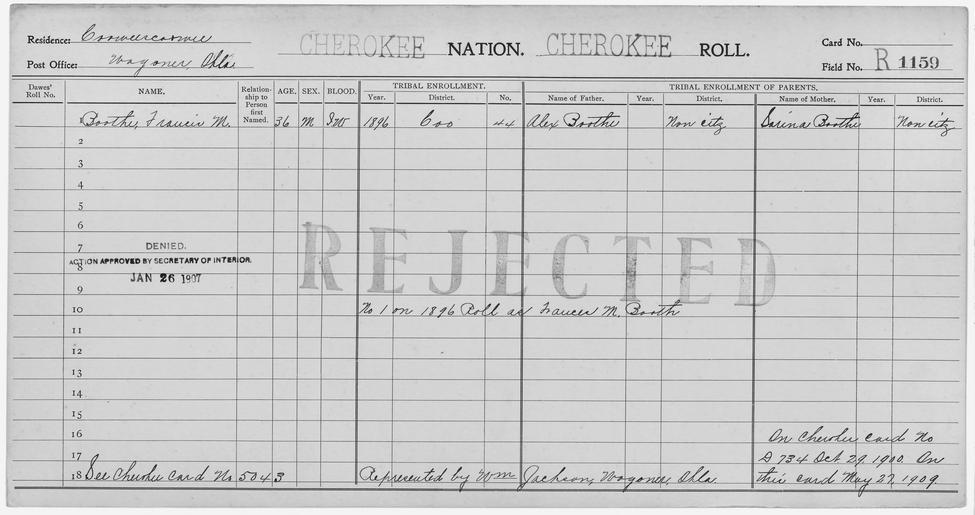 Residence: Cooweescoowee
CHEROKEE NATION. CHEROKEE ROLL.
Card No.
Post Office: Wagoner, Okla.
Field No. R 1159
Dawes' Roll No.
NAME.
Relationship to Person first Named.
AGE. SEX. BLOOD.
TRIBAL ENROLLMENT.
Year. District. No.
TRIBAL ENROLLMENT OF PARENTS.
Name of Father. Year. District. Name of Mother. Year. District.
1 Boothe, Francis M. 36 M IW 1896 Coo 44 Alex Boothe Non citz Sarina Boothe Non citz
2
3
4
5
6
REJECTED
7 DENIED.
8 ACTION APPROVED BY SECRETARY OF INTERIOR.
JAN 26 1907
9
10 No 1 on 1896 Roll as Frances M. Booth
11
12
13
14
15
16 On Cherokee card No
17 D 734 Oct 29, 1900. On
18 See Cherokee Card No 5043 Represented by Wm Jackson, Wagoner, Okla. this card May 27, 1909.